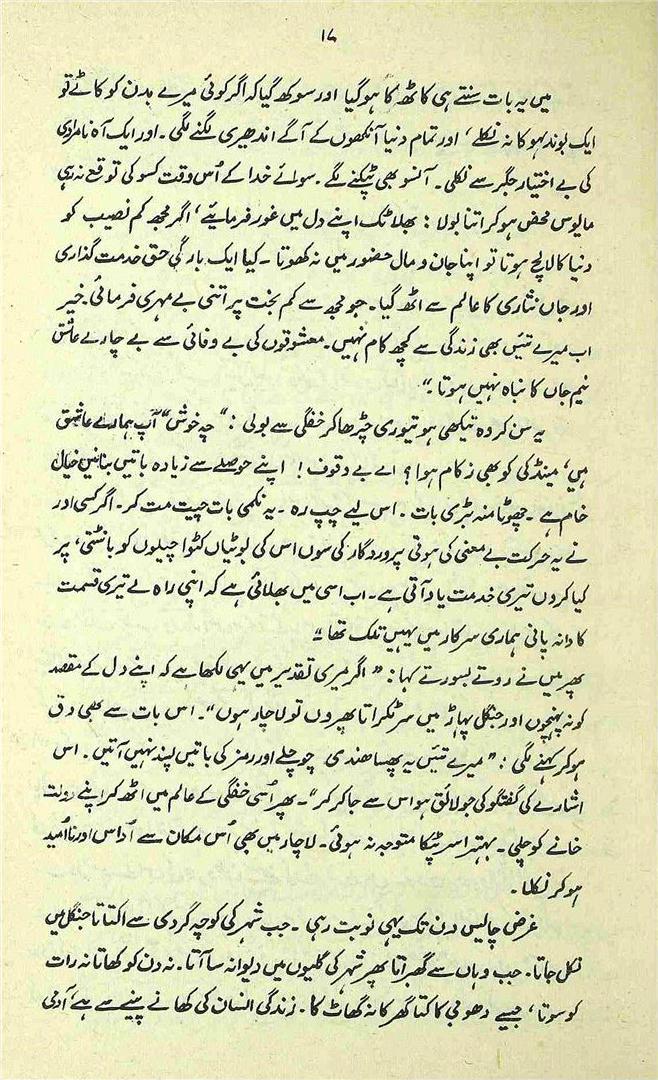 ۱۷
میں یہ بات سنتے ہی کاٹھ کا ہو گیا اور سوکھ گیا کہ اگر کوئی میرے بدن کو کاٹے تو
ایک بوند لہو کا نہ نکلے، اور تمام دنیا آنکھوں کے آگے اندھیری لگنے لگی۔ اور ایک آہ نامرادی
کی بے اختیار جگر سے نکلی۔ آنسو بھی ٹپکنے لگے۔ سوائے خدا کے اُس وقت کسو کی توقع نہ رہی
مایوس محض ہو کر اتنا بولا : بھلا ٹک اپنے دل میں غور فرمایئے، اگر مجھ کم نصیب کو
دنیا کا لالچ ہوتا تو اپنا جان و مال حضور میں نہ کھوتا۔ کیا ایک بارگی حق خدمت گذاری
اور جاں نثاری کا عالم سے اٹھ گیا۔ جو مجھ سے کم بخت پر اتنی بے مہری فرمائی۔ خیر
اب میرے تئیں بھی زندگی سے کچھ کام نہیں۔ معشوقوں کی بے وفائی سے بے چارے عاشق
نیم جاں کا نباہ نہیں ہوتا۔"
یہ سن کر وہ تیکھی ہو تیوری چڑھا کر خفگی سے بولی : "چہ خوش" آپ ہمارے عاشق
ہیں، مینڈکی کو بھی زکام ہوا؟ اے بے وقوف! اپنے حوصلے سے زیادہ باتیں بنانیں خیال
خام ہے۔ چھوٹا منہ بڑی بات۔ اس لیے چپ رہ۔ یہ نکمی بات چیت مت کر۔ اگر کسی اور
نے یہ حرکت بے معنی کی ہوتی پروردگار کی سوں اس کی بوٹیاں کٹوا چیلوں کو بانٹتی، پر
کیا کروں تیری خدمت یاد آتی ہے۔ اب اسی میں بھلائی ہے کہ اپنی راہ لے تیری قسمت
کا دانہ پانی ہماری سرکار میں یہیں تلک تھا"
پھر میں نے روتے بسورتے کہا : "اگر میری تقدیر میں یہی لکھا ہے کہ اپنے دل کے مقصد
کو نہ پہنچوں اور جنگل پہاڑ میں سر ٹکراتا پھروں تو لاچار ہوں"۔ اس بات سے بھی دق
ہو کر کہنے لگی : "میرے تئیں یہ پھسا ھندی چوچلے اور رمز کی باتیں پسند نہیں آتیں۔ اس
اشارے کی گفتگو کی جو لائق ہو اس سے جا کر کر"۔ پھر اُسی خفگی کے عالم میں اٹھ کر اپنے دولت
خانے کو چلی۔ بہتیرا سر پٹکا متوجہ نہ ہوئی۔ لاچار میں بھی اُس مکان سے اُداس اور ناامید
ہو کر نکلا۔
غرض چالیس دن تک یہی نوبت رہی۔ جب شہر کی کوچہ گردی سے اکتاتا جنگل میں
نکل جاتا۔ جب وہاں سے گھبراتا پھر شہر کی گلیوں میں دیوانہ سا آتا۔ نہ دن کو کھاتا نہ رات
کو سوتا، جیسے دھوبی کا کتا گھر کا نہ گھاٹ کا۔ زندگی انسان کی کھانے پینے سے ہے، آدمی